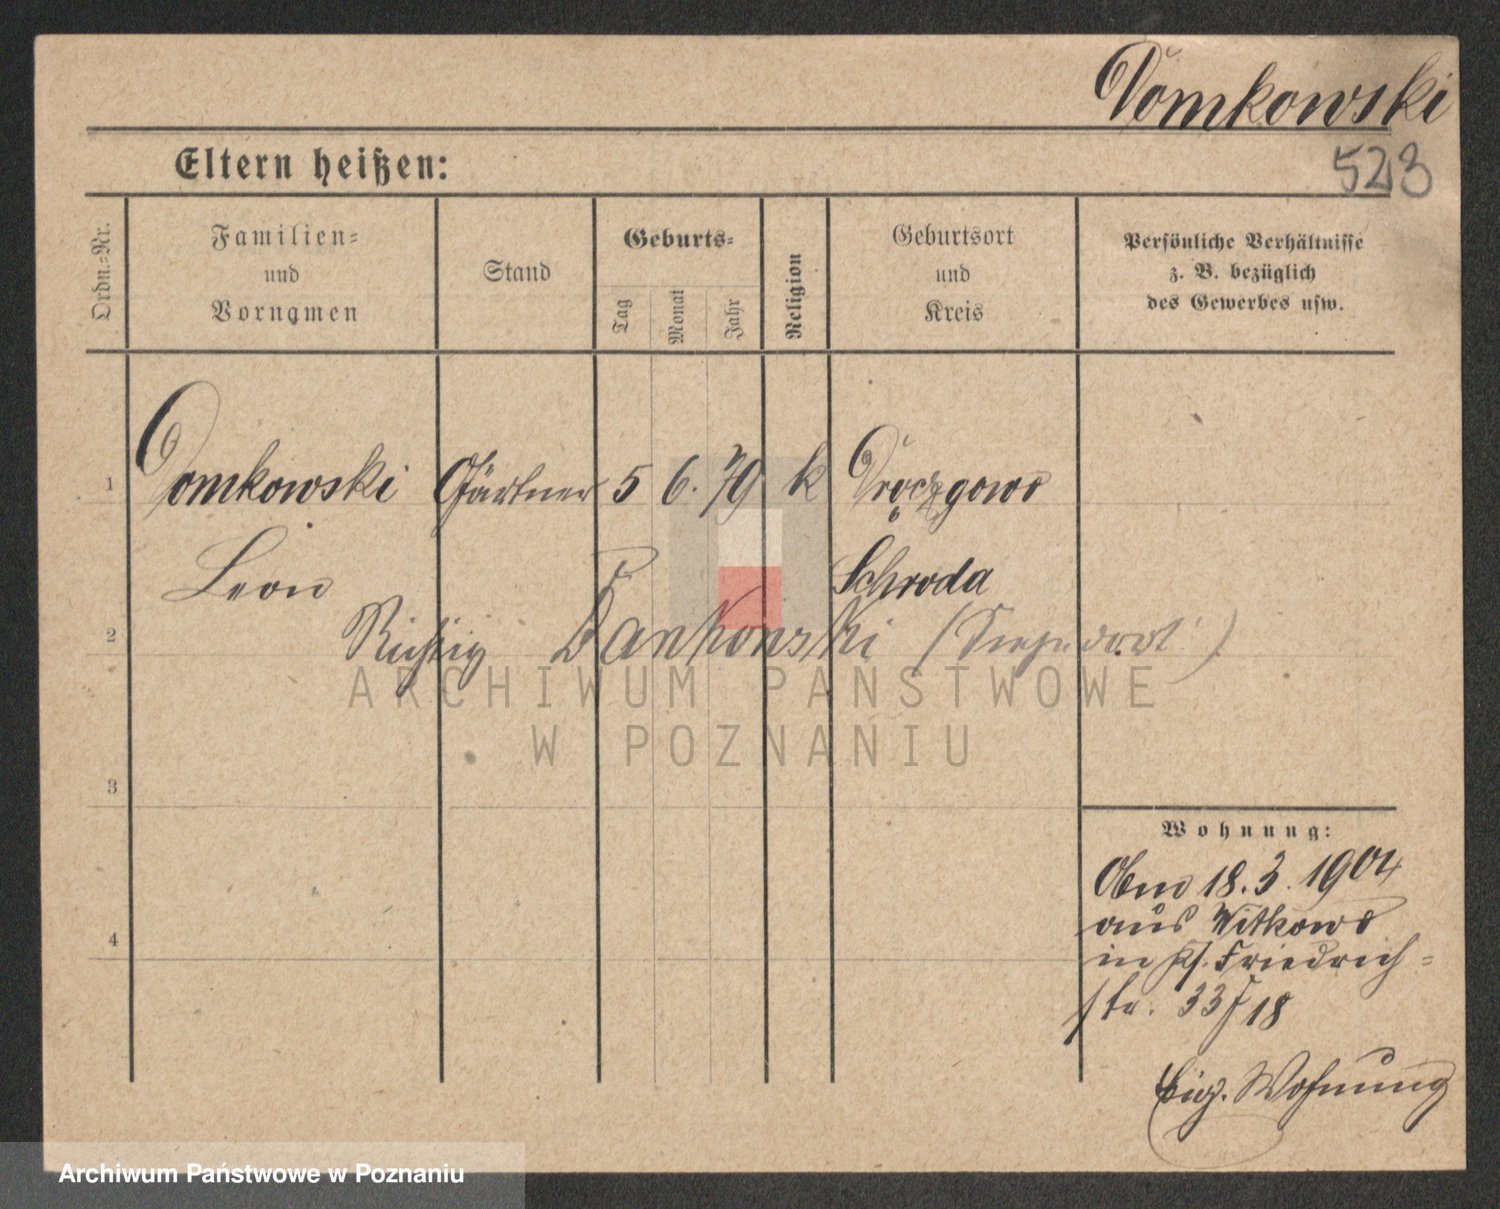 Domkowski
523
Eltern heißen:
Ordn.=Nr.
Familien=
und
Vornamen
Stand
Geburts=
Tag
Monat
Jahr
Religion
Geburtsort
und
Kreis
Persönliche Verhältnisse
z. B. bezüglich
des Gewerbes usw.
1 Domkowski Gärtner 5 6. 79 k
Leon Schroda
2 Richtig
3
4
Wohnung:
18.3.1904
aus Witkowo
in Friedrich=
str. 33 18
Eig. Wohnung
ARCHIWUM PAŃSTWOWE
W POZNANIU
Archiwum Państwowe w Poznaniu